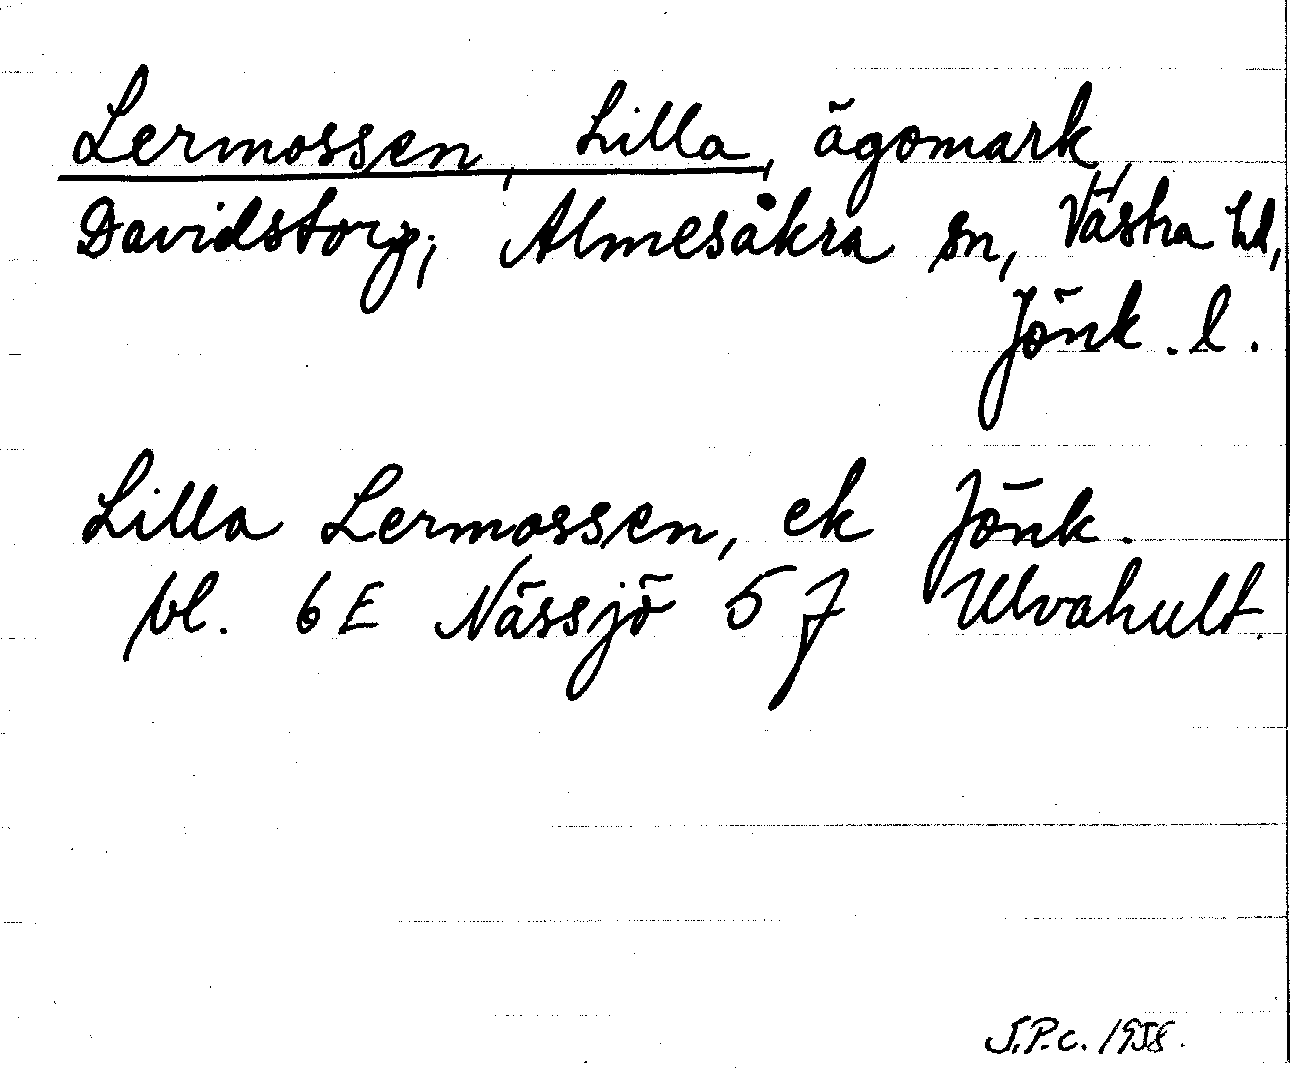 Lermossen, Lilla, ägomark,
Davidstorp, Almesåkra sn, Västra hd,
Jönk. l.
Lilla Lermossen, ek Jönk.
bl. 6E Nässjö 5 f Ulvahult.
J.P.c. 1958.